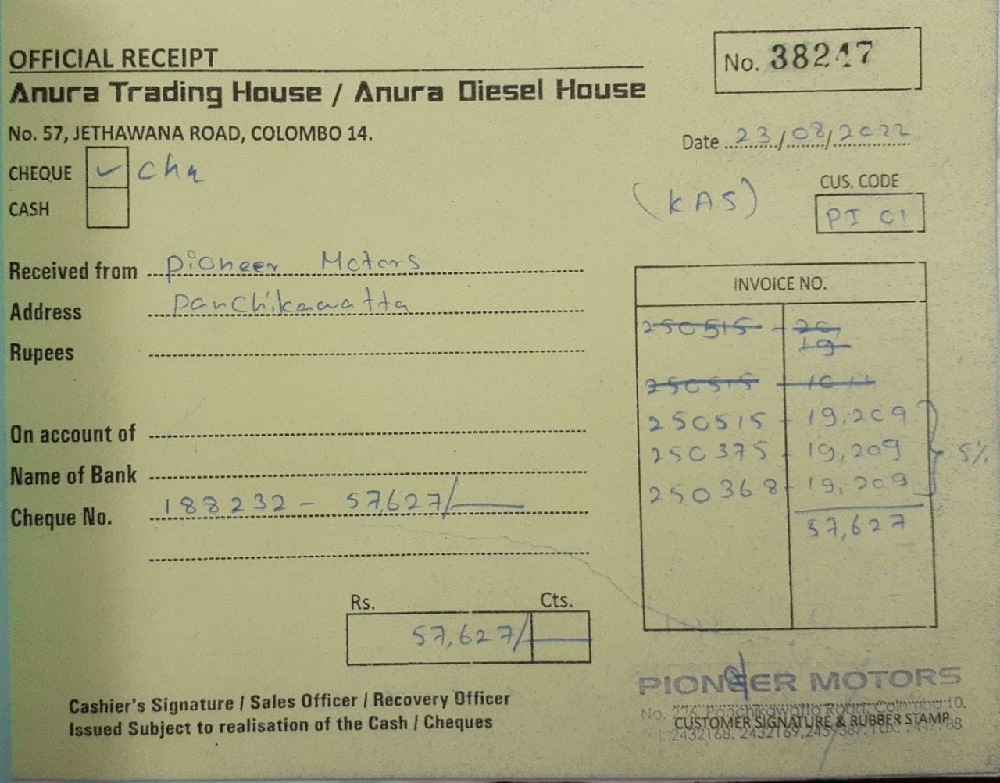 OFFICIAL RECEIPT
No. 38247
Anura Trading House / Anura Diesel House
No. 57, JETHAWANA ROAD, COLOMBO 14.
Date 23/08/2022
CHEQUE ✓ Chq
CASH
(KAS)
CUS. CODE
PI 01
Received from Pioneer Motors
Address Panchikawatta
Rupees
On account of
Name of Bank
Cheque No. 188232 - 57,627/
INVOICE NO.
250515 - 20,
19
250515 - 1011
250515 - 19,209
250375 - 19,209 } 5%
250368 - 19,209
57,627
Rs. Cts.
57,627/
Cashier's Signature / Sales Officer / Recovery Officer
Issued Subject to realisation of the Cash / Cheques
PIONEER MOTORS
No. 226, Panchikawatta Road, Colombo 10.
CUSTOMER SIGNATURE & RUBBER STAMP
2432168, 2432169,